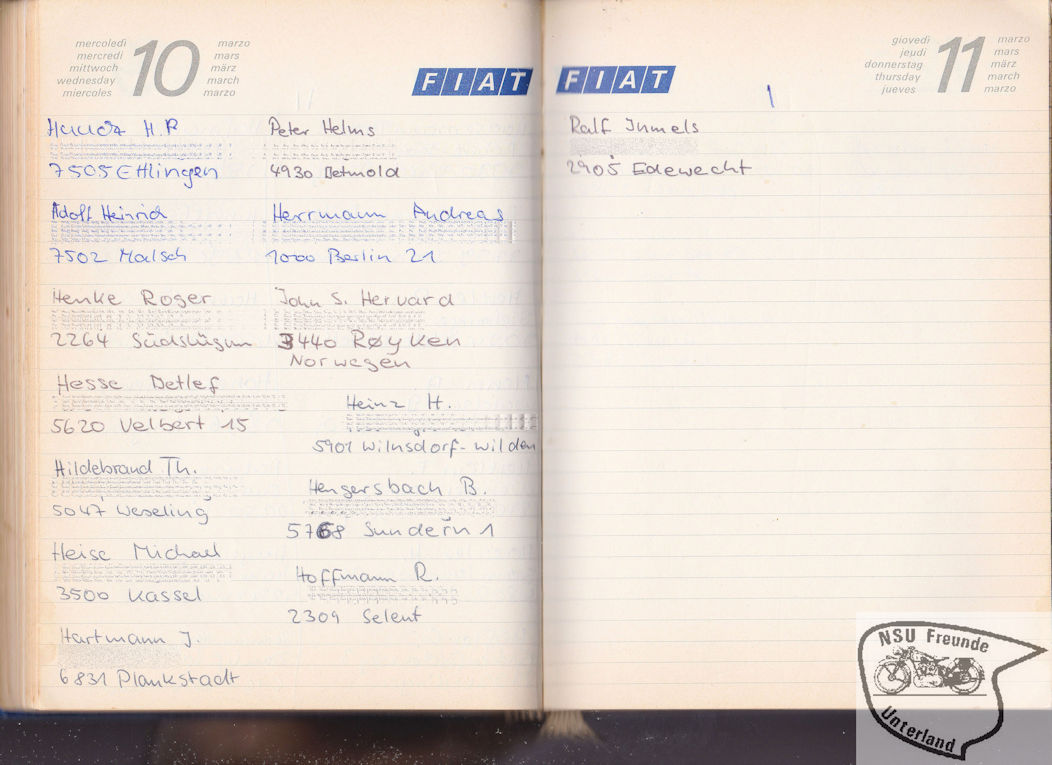 mercoledì
mercredi
mittwoch
wednesday
miercoles
10
marzo
mars
märz
march
marzo
FIAT
H.P
7505 Ettlingen
Adolf Heinrich
7502 Malsch
Henke Roger
2264
Hesse Detlef
5620 Velbert 15
Hildebrand Th.
5047 Weseling
Heise Michael
3500 Kassel
Hartmann J.
6831 Plankstadt
Peter Helms
4930 Detmold
Herrmann Andreas
1000 Berlin 21
John S. Hervard
3440 Røyken
Norwegen
Heinz H.
5901 Wilnsdorf-Wilden
Hengersbach B.
5768 Sundern 1
Hoffmann R.
2309 Selent
FIAT
giovedì
jeudi
donnerstag
thursday
jueves
11
marzo
mars
märz
march
marzo
I
Ralf Inmels
2905 Edewecht
NSU Freunde
Unterland